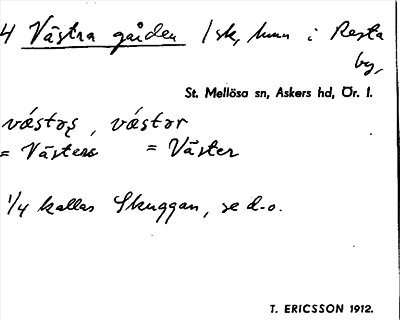 4 Västra gården 1 sk, hmn i Resta
by,
St. Mellösa sn, Askers hd, Ör. l.
västəʂ, västər
= Västers = Väster
1/4 kallas Skuggan, se d-o.
T. ERICSSON 1912.